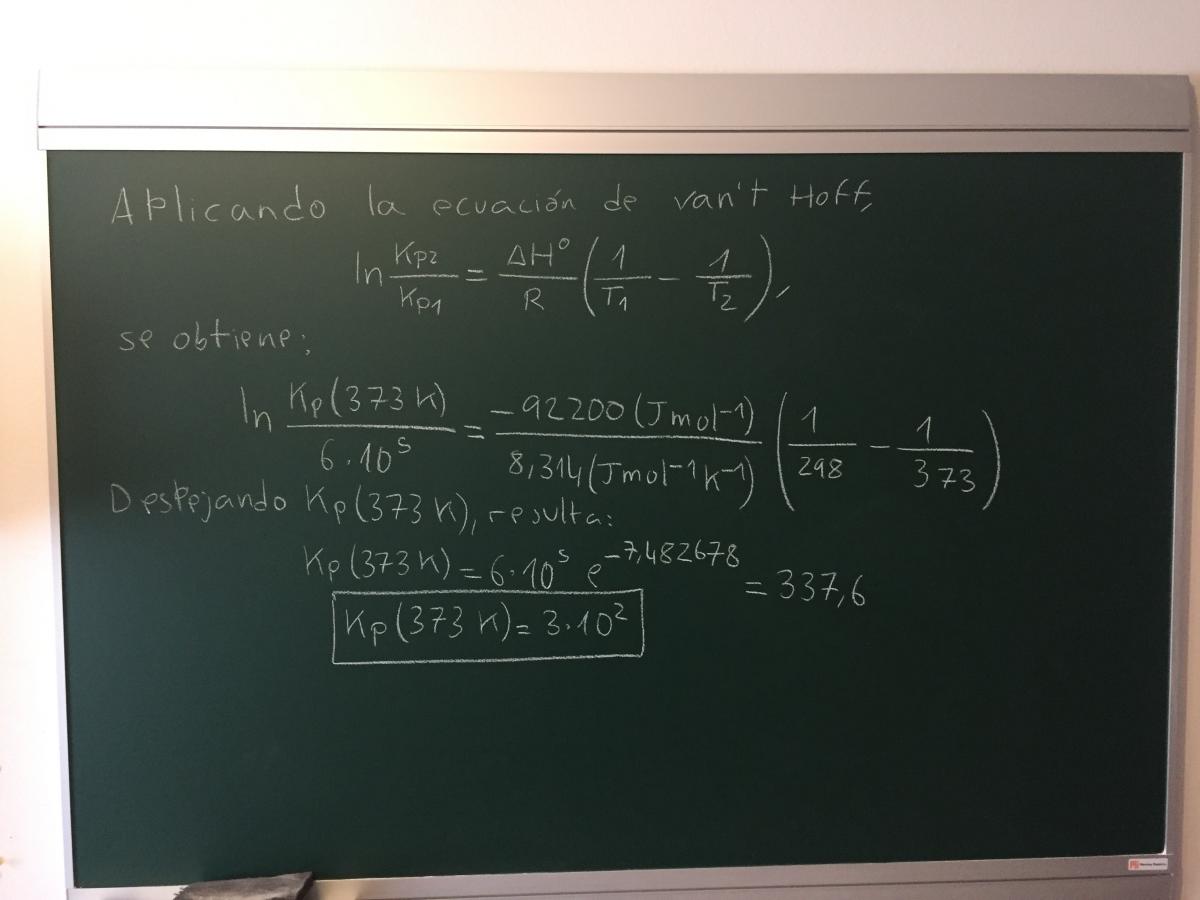 Aplicando la ecuación de van't Hoff,
ln Kp2/Kp1 = ΔH°/R (1/T1 − 1/T2),
se obtiene:
ln Kp(373 K)/6·10⁵ = −92200 (J mol⁻¹)/8,314 (J mol⁻¹ K⁻¹) (1/298 − 1/373)
Despejando Kp(373 K), resulta:
Kp(373 K) = 6·10⁵ e^−7,482678 = 337,6
Kp(373 K) = 3·10²